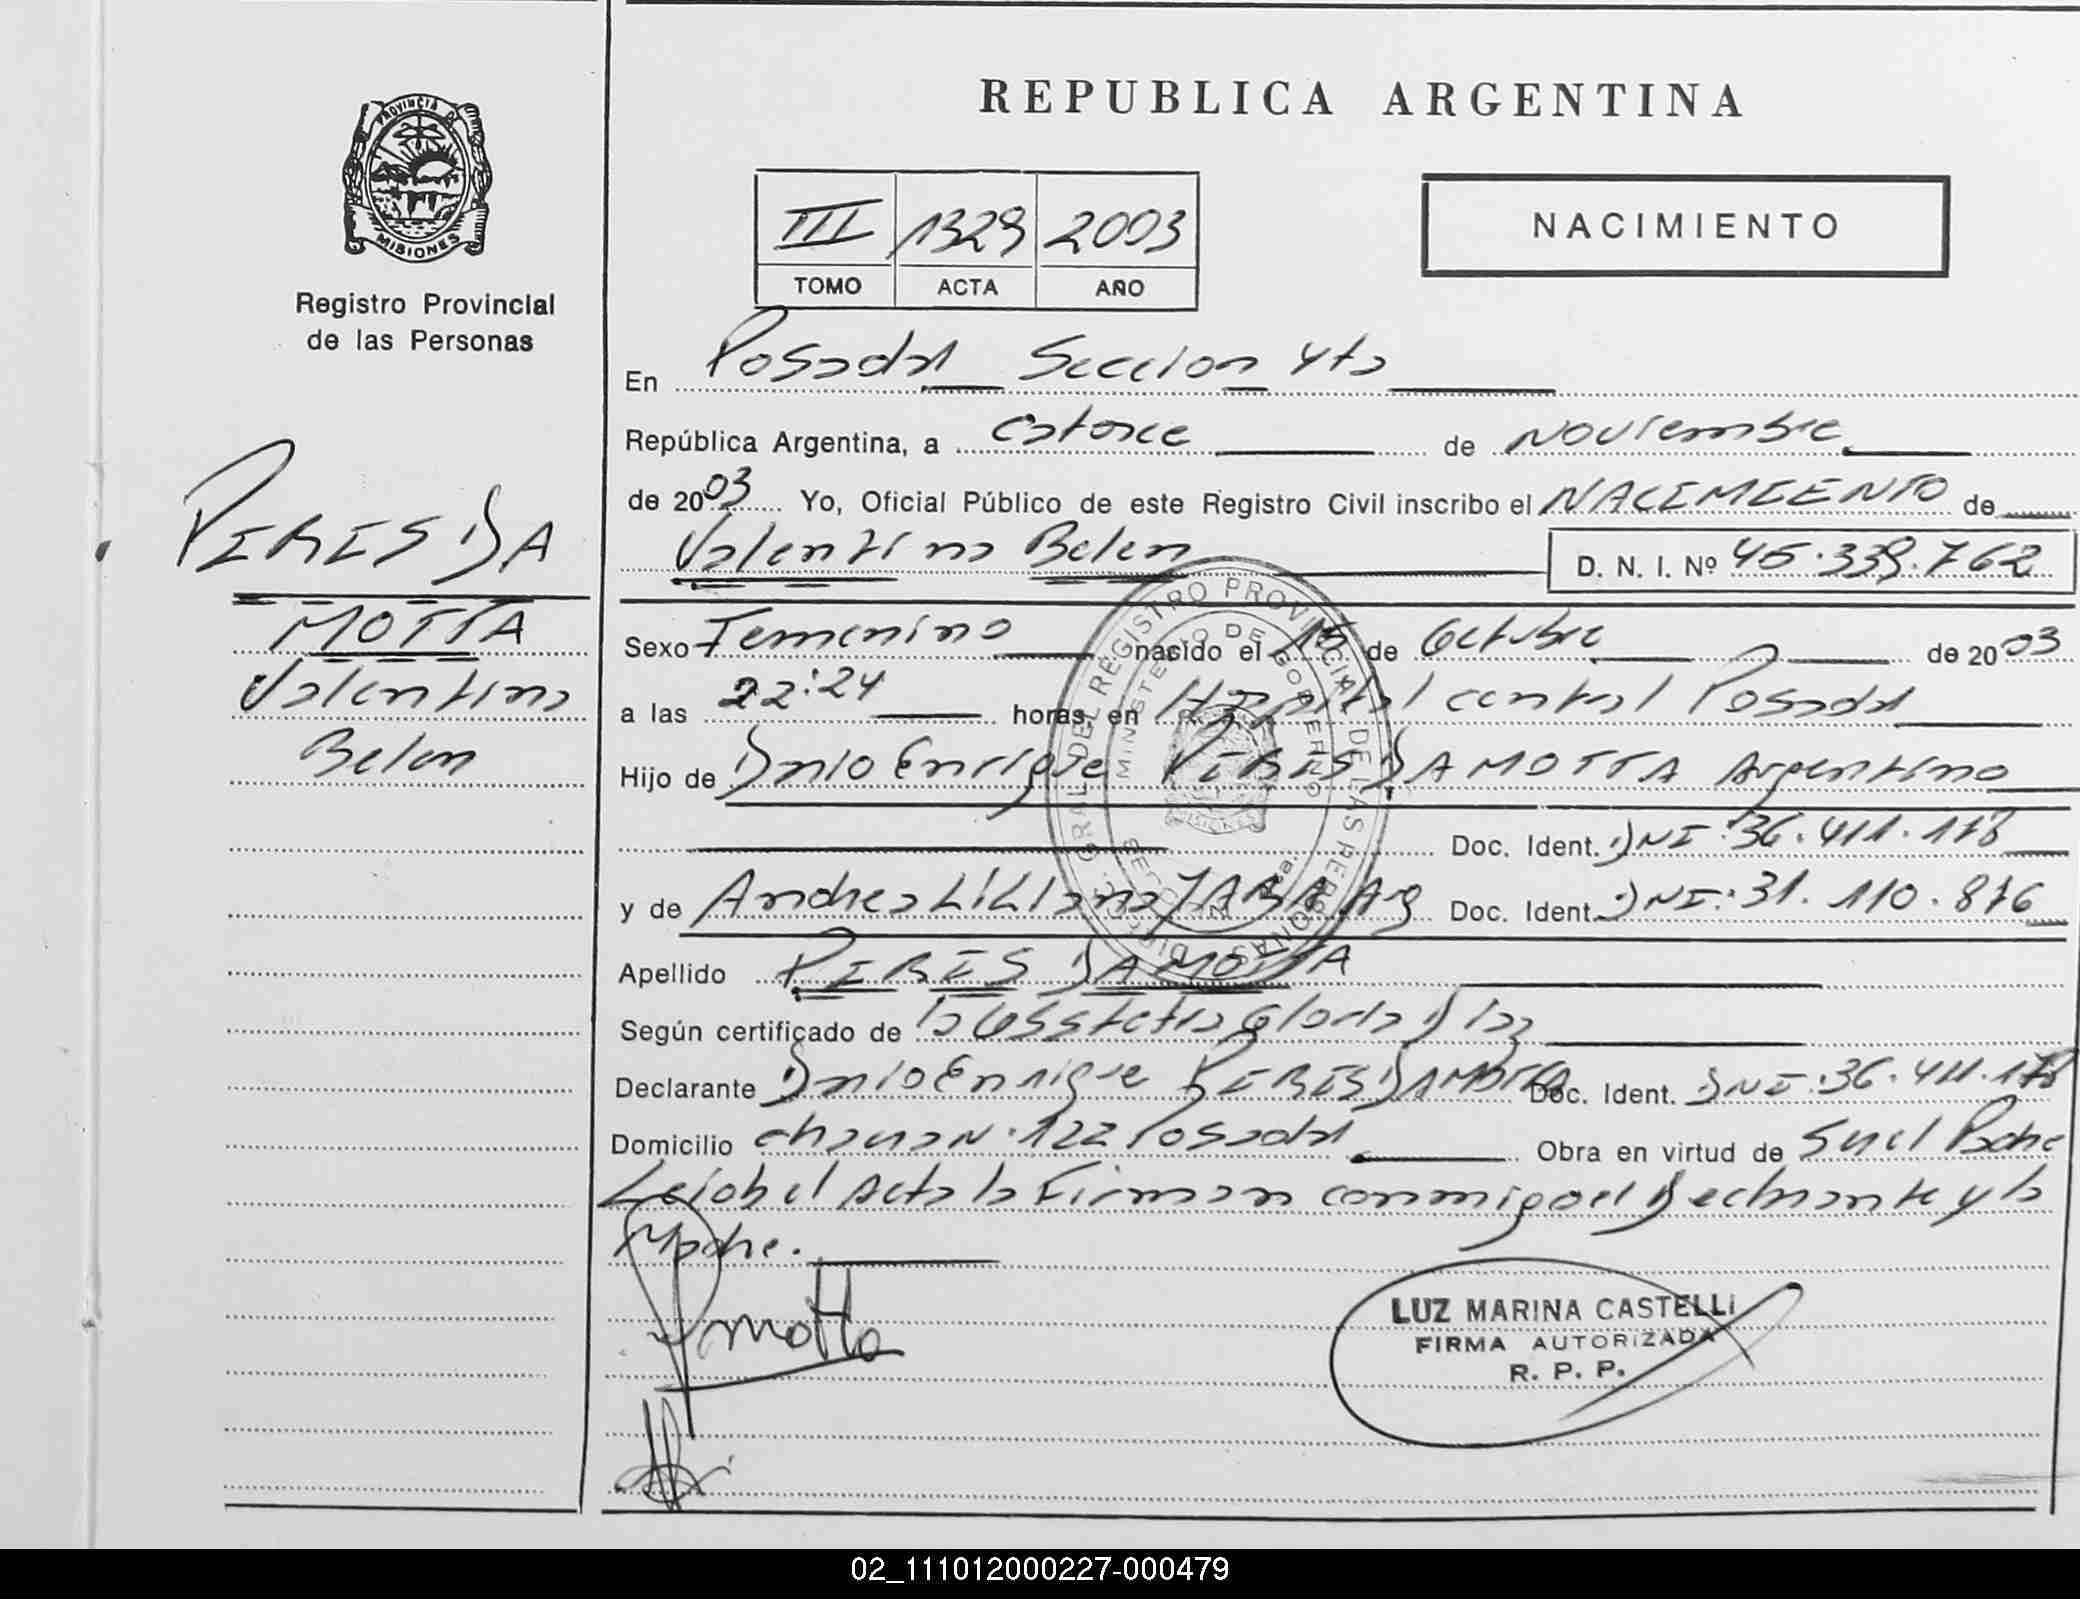 REPUBLICA ARGENTINA
PROVINCIA DE
MISIONES
Registro Provincial
de las Personas
III 1329 2003
TOMO ACTA AÑO
NACIMIENTO
PERES DA
MOTTA
Valentina
Belen
En Posadas Seccion 4ta
República Argentina, a catorce de Noviembre
de 2003 Yo, Oficial Público de este Registro Civil inscribo el NACIMIENTO de
Valentina Belen D. N. I. Nº 45.339.762
Sexo Femenino nacido el 15 de Octubre de 2003
a las 22:24 horas, en Hospital central Posadas
Hijo de Enrique PERES DA MOTTA Argentino
Doc. Ident. DNI: 36.411.178
y de Andrea Liliana JARA Arg Doc. Ident. DNI: 31.110.876
Apellido PERES DA MOTTA
Según certificado de la Obstetra Gloria Diaz
Declarante Enrique PERES DA MOTTA Doc. Ident. DNI: 36.411.178
Domicilio N. 122 Posadas Obra en virtud de Ser el Padre
Leida el Acta la Firman conmigo el Declarante y la
Madre.
LUZ MARINA CASTELLI
FIRMA AUTORIZADA
R. P. P.
02_111012000227-000479